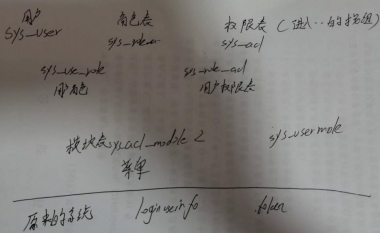 用户 角色表 权限表（进入··的按钮）
sys_user sys_role sys_acl
sys_use_role sys_role_acl
用户角色 用户权限表
模块表 sys_acl_module 2 sys_usermole
菜单
原来的系统 loginuserinfo token